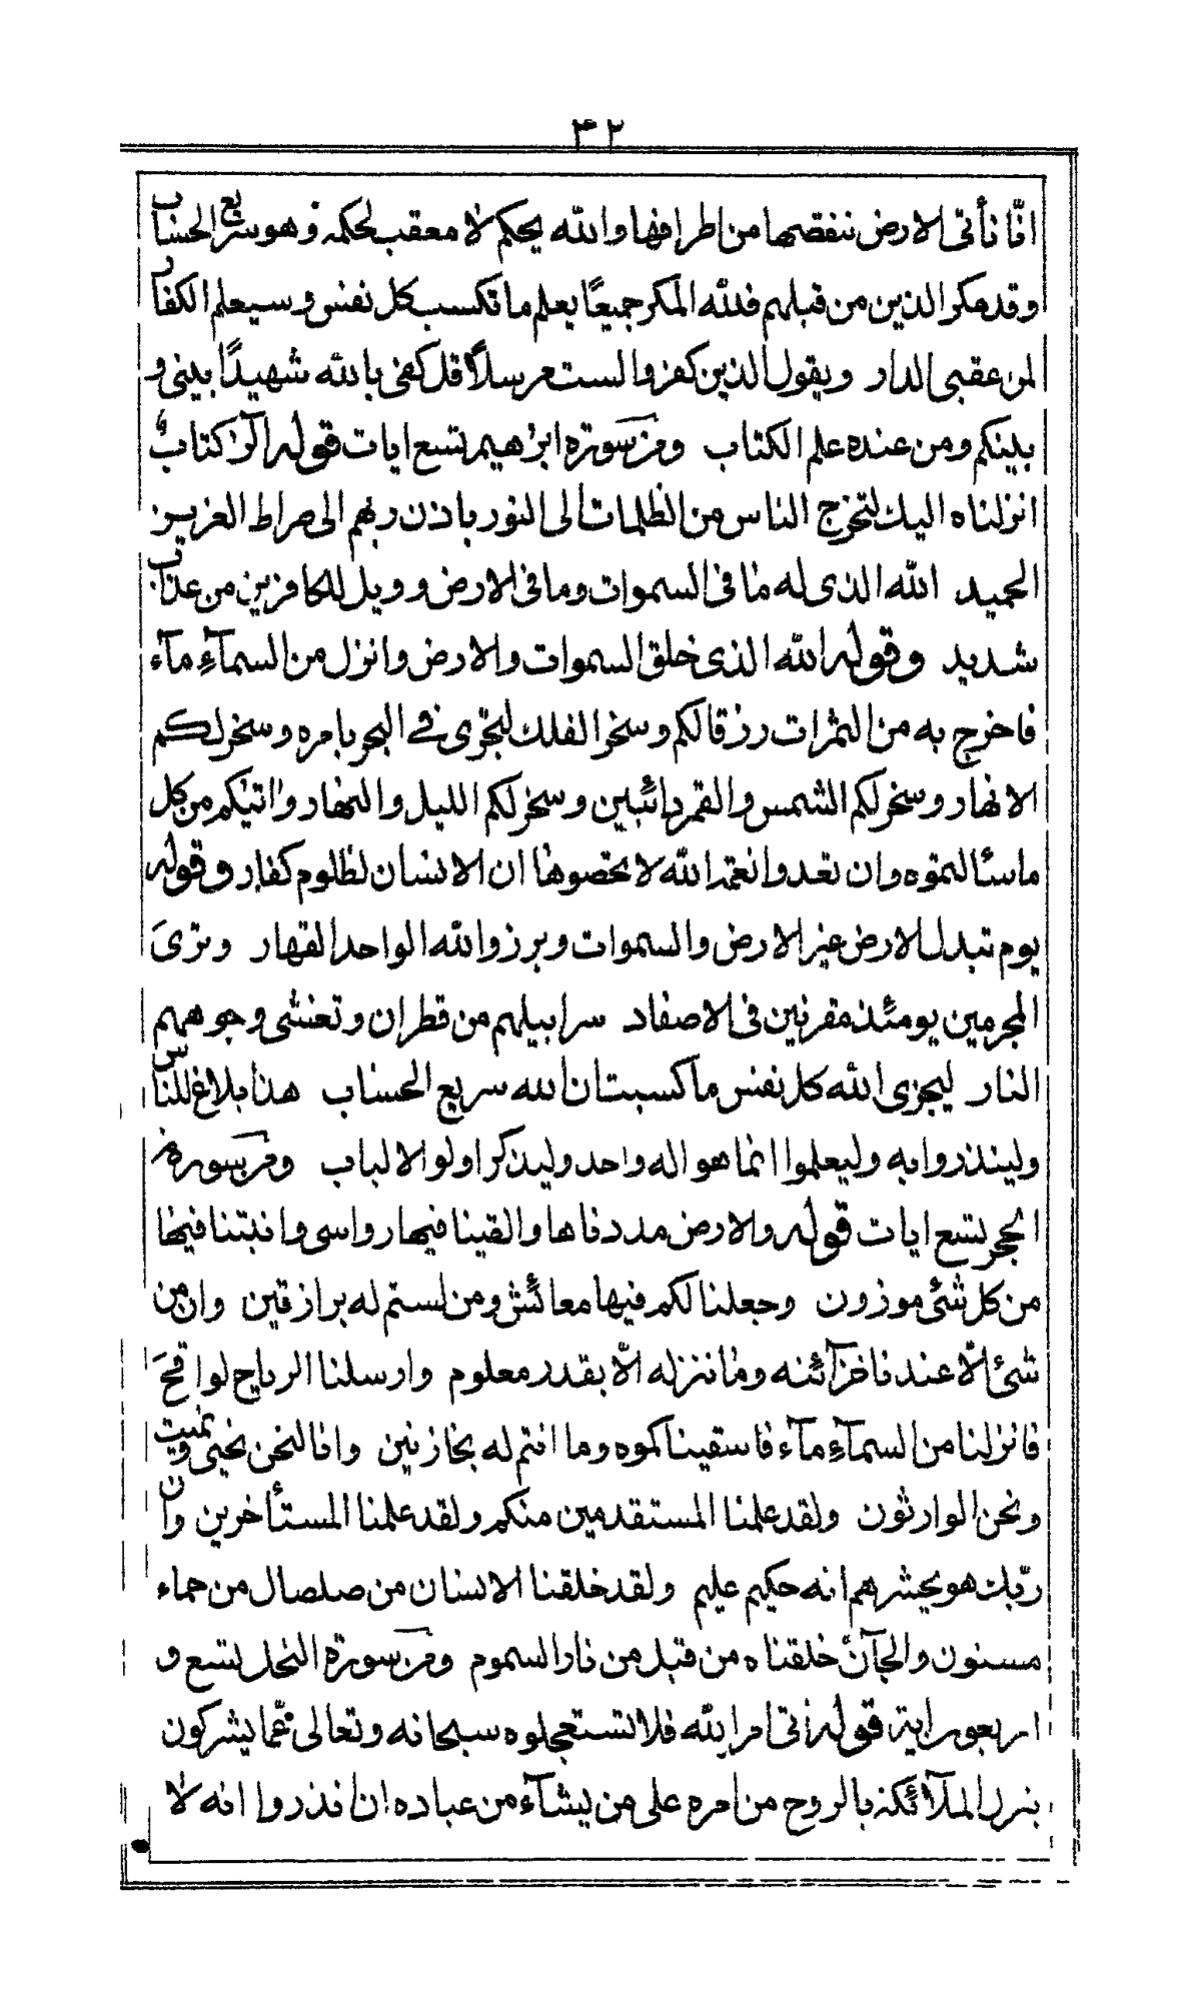 ٣٢
انّا نأتى الارض ننقصها من اطرافها والله يحكم لا معقب لحكمه وهو سريع الحساب
وقد مكر الذين من قبلهم فلله المكر جميعًا يعلم ما تكسب كل نفس وسيعلم الكفار
لمن عقبى الدار ويقول الذين كفروا لست مرسلًا قل كفى بالله شهيدًا بينى و
بينكم ومن عنده علم الكتاب ومن سورة ابرٰهيم تسع ايات قوله الرٰ كتابٌ
انزلناه اليك لتخرج الناس من الظلمات الى النور باذن ربهم الى صراط العزيز
الحميد الله الذى له ما فى السموات وما فى الارض وويل للكافرين من عذاب
شديد وقوله الله الذى خلق السموات والارض وانزل من السمآءِ مآء
فاخرج به من الثمرات رزقا لكم وسخر الفلك لتجرى فى البحر بامره وسخر لكم
الانهار وسخر لكم الشمس والقمر دائبين وسخر لكم الليل والنهار واٰتيٰكم من كل
ما سئالتموه وان تعدوا نعمة الله لا تحصوها ان الانسان لظلوم كفار وقوله
يوم تبدل الارض غير الارض والسموات وبرزوا لله الواحد القهار وترىَ
المجرمين يومئذ مقرنين فى الاصفاد سرابيلهم من قطران وتغشى وجوههم
النار ليجزى الله كل نفس ما كسبت ان الله سريع الحساب هذا بلاغ للناس
ولينذروا به وليعلموا انما هو اله واحد وليذكر اولوا الالباب ومن سورة
الحجر تسع ايات قوله والارض مددناها والقينا فيها رواسى وانبتنا فيها
من كل شئ موزون وجعلنا لكم فيها معائش ومن لستم له برازقين وان من
شئ الّا عندنا خزآئنه وما ننزله الّا بقدر معلوم وارسلنا الرياح لواقحَ
فانزلنا من السمآءِ مآء فاسقيناكموه وما انتم له بخازنين وانا لنحن نحيى ونميت
ونحن الوارثون ولقد علمنا المستقدمين منكم ولقد علمنا المستأخرين وان
ربّك هو يحشرهم انه حكيم عليم ولقد خلقنا الانسان من صلصال من حماء
مسنون والجآنّ خلقناه من قبل من نار السموم ومن سورة النحل تسع و
اربعون اية قوله اتى امر الله فلا تستعجلوه سبحانه وتعالى عمّا يشركون
ينزل الملآئكة بالروح من امره على من يشآء من عباده ان انذروا انه لا